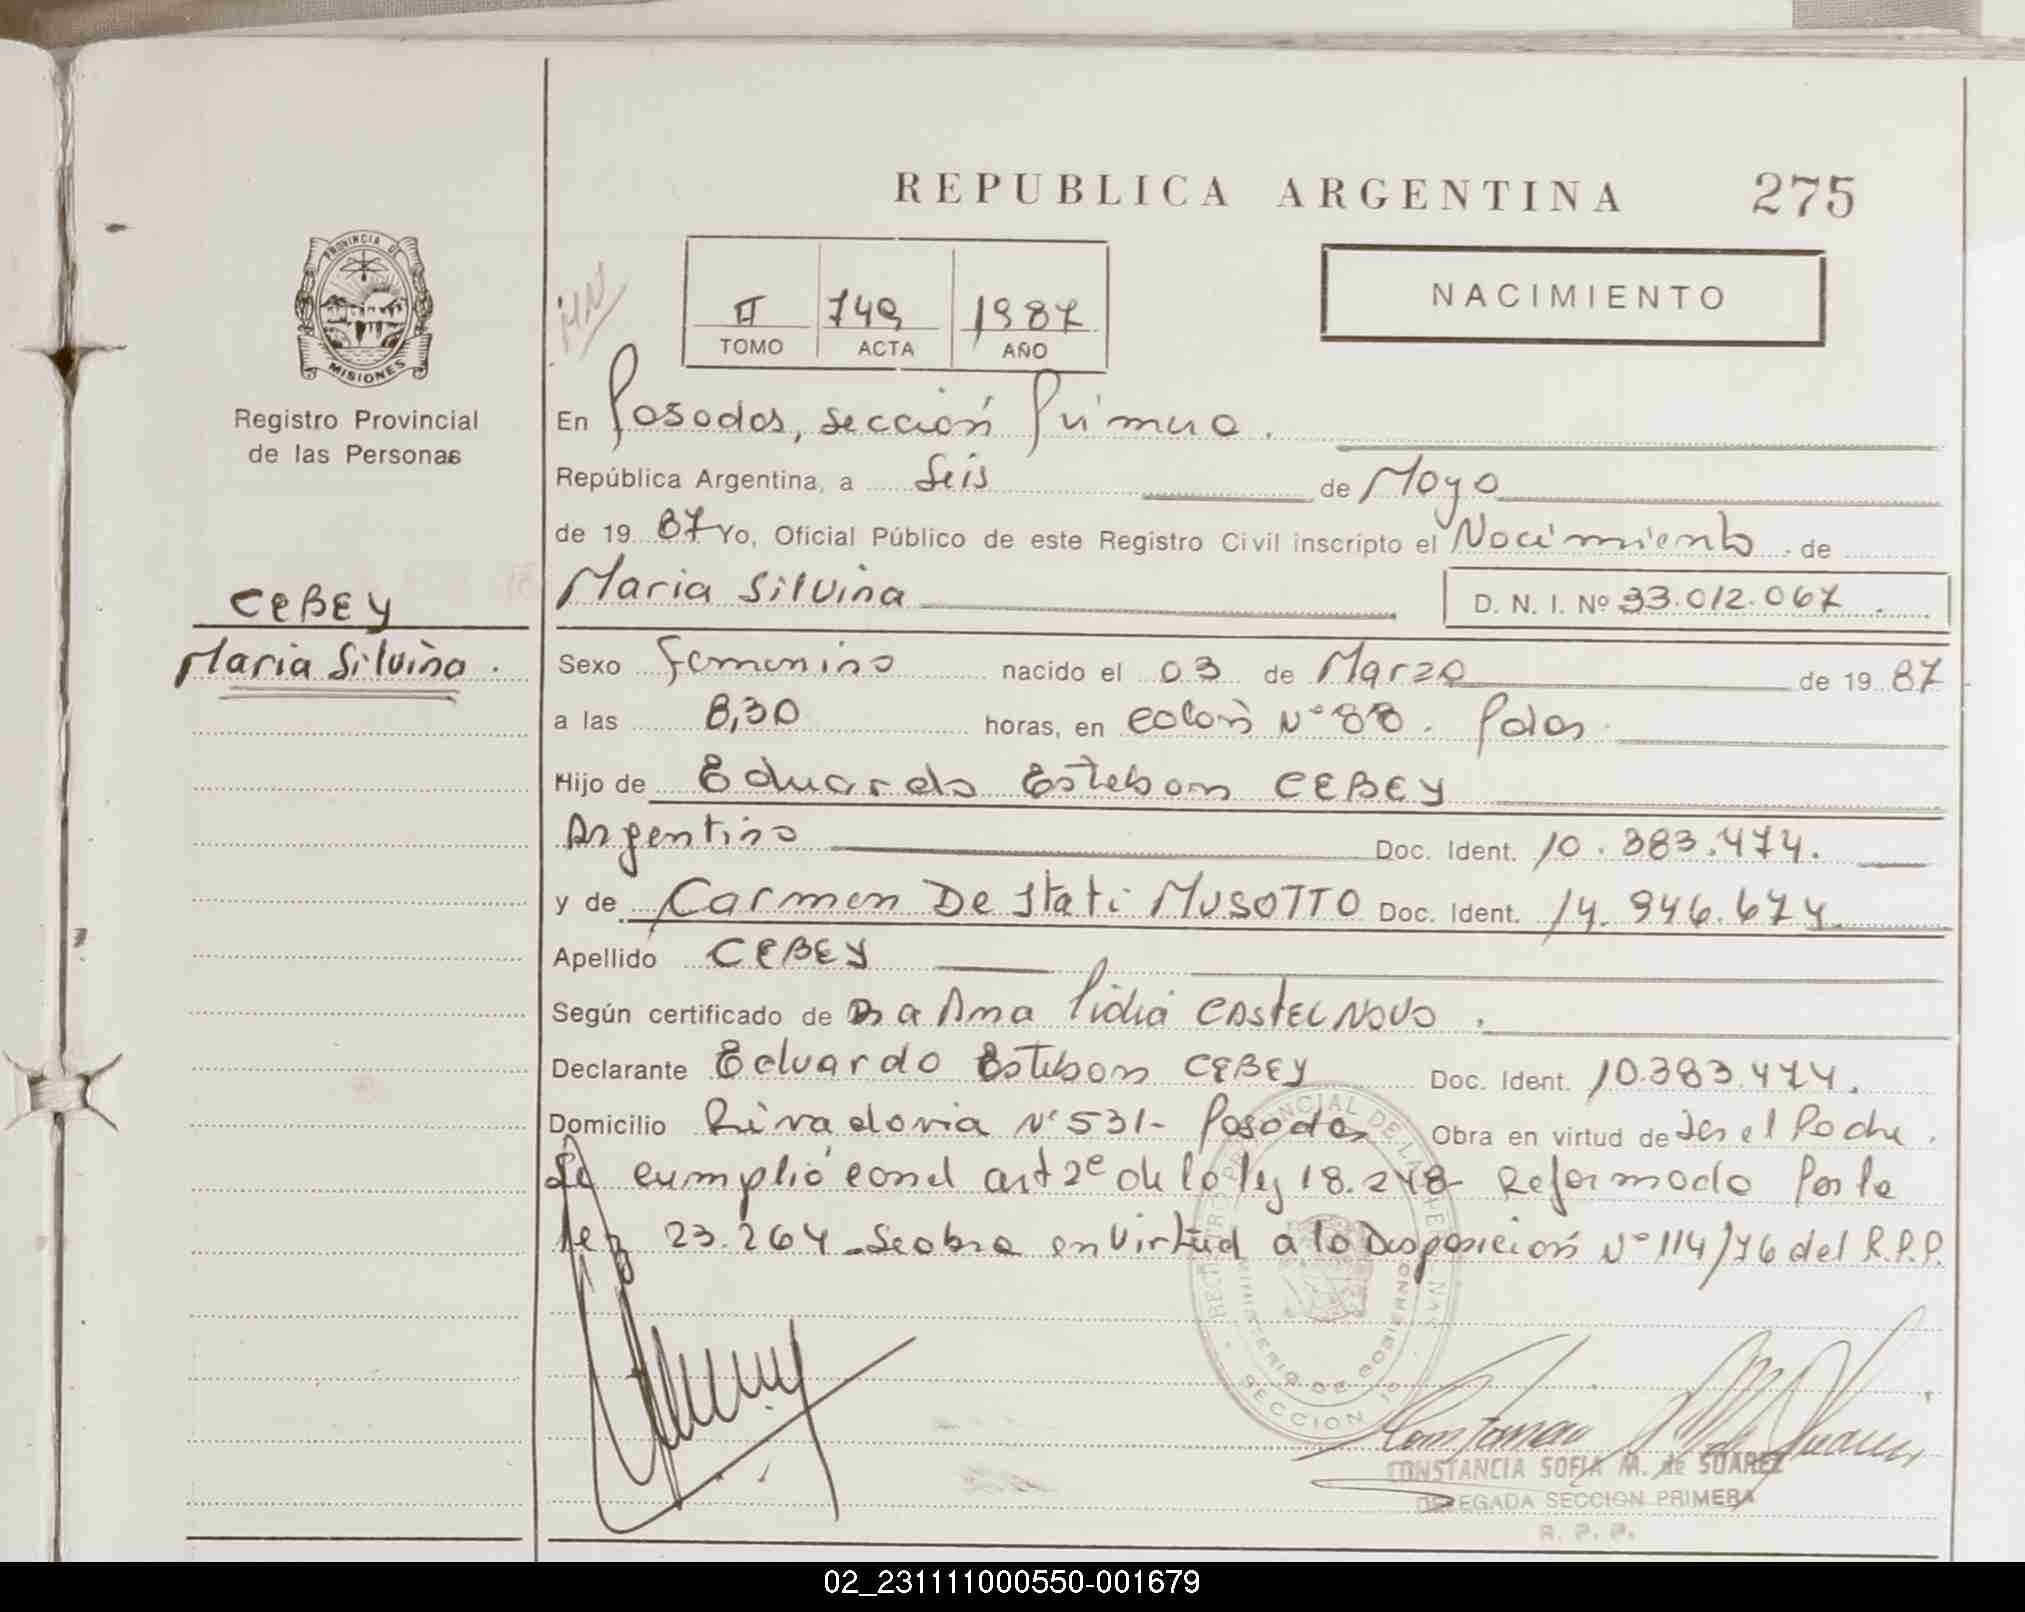 REPUBLICA ARGENTINA 275
PROVINCIA DE
MISIONES
Registro Provincial
de las Personas
NACIMIENTO
II 749 1987
TOMO ACTA AÑO
En Posadas, sección Primera.
República Argentina, a Seis de Mayo
de 1987 Yo, Oficial Público de este Registro Civil inscripto el Nacimiento de
CEBEY
Maria Silvina.
Maria Silvina D. N. I. Nº 33.012.067
Sexo Femenino nacido el 03 de Marzo de 1987
a las 8,30 horas, en Colón Nº 88. Pdas
Hijo de Eduardo Esteban CEBEY
Argentino Doc. Ident. 10.383.474.
y de Carmen De Stati MUSOTTO Doc. Ident. 14.946.674
Apellido CEBEY
Según certificado de Dra Ana Lidia CASTELNOVO.
Declarante Eduardo Esteban CEBEY Doc. Ident. 10.383.474.
Domicilio Rivadavia Nº 531- Posadas Obra en virtud de ser el Padre.
Se cumplió con el art 2º de la ley 18.248 Reformado Por la
ley 23.264 - Se obra en virtud a la Disposición Nº 114/76 del R.P.P.
REGISTRO PROVINCIAL DE LAS PERSONAS
MINISTERIO DE GOBIERNO
SECCION 1º
CONSTANCIA SOFIA M. de SUAREZ
DELEGADA SECCION PRIMERA
R. P. P.
02_231111000550-001679